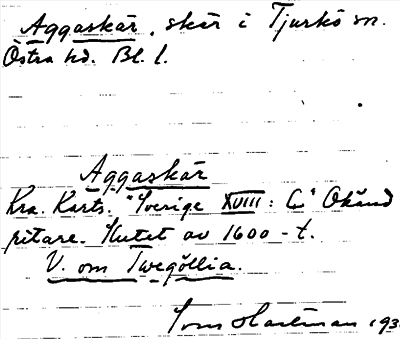 Aggaskär, skär i Tjurkö sn.
Östra hd. Bl. l.
Aggaskär
Kra. Karts. "Sverige XVIII: C" Okänd
ritare. Slutet av 1600-t.
V. om Twegöllia.
Hartman 193